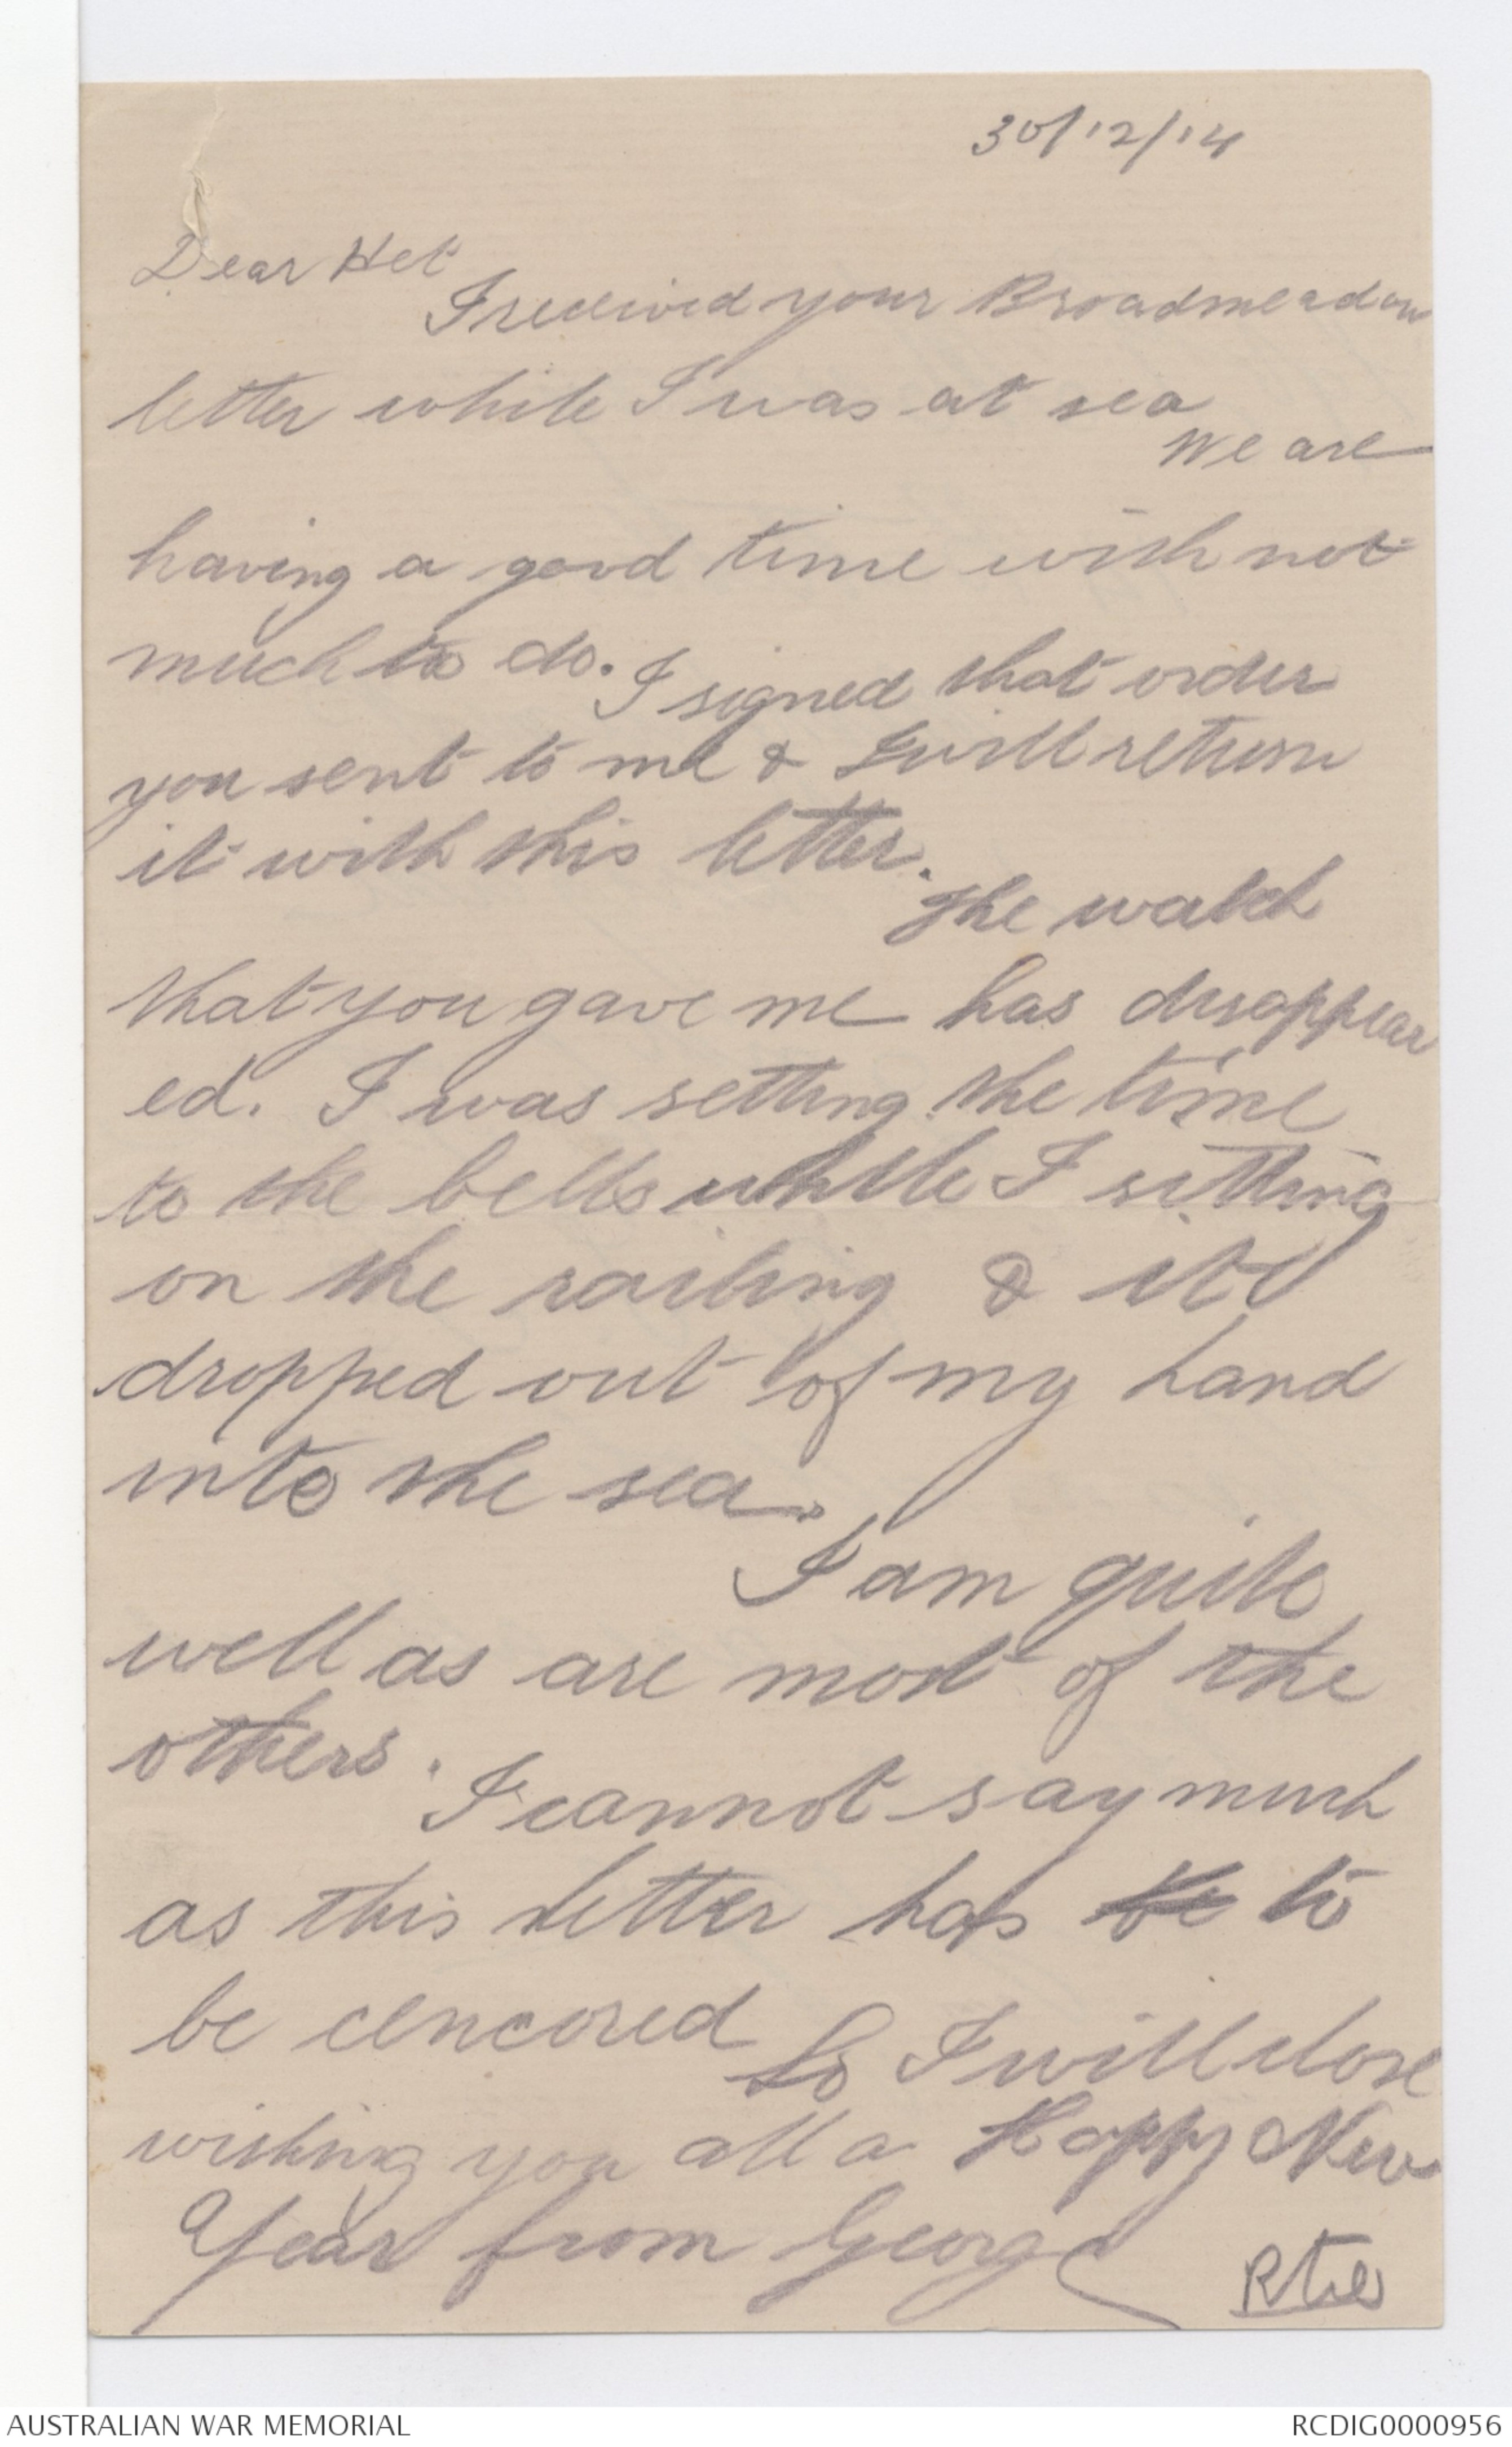 30/12/14
Dear Het
I received your Broadmeadow
letter while I was at sea
We are
having a good time with not
much to do. I signed that order
you sent to me & I will return
it with this letter.
The watch
that you gave me has disappear
ed. I was setting the time
to the bells while I sitting
on the railing & it
dropped out of my hand
into the sea.
I am quite
well as are most of the
others. I cannot say much
as this letter has to
be cencored So I will close
wishing you all a Happy New
Year from George
AUSTRALIAN WAR MEMORIAL
RCDIG0000956